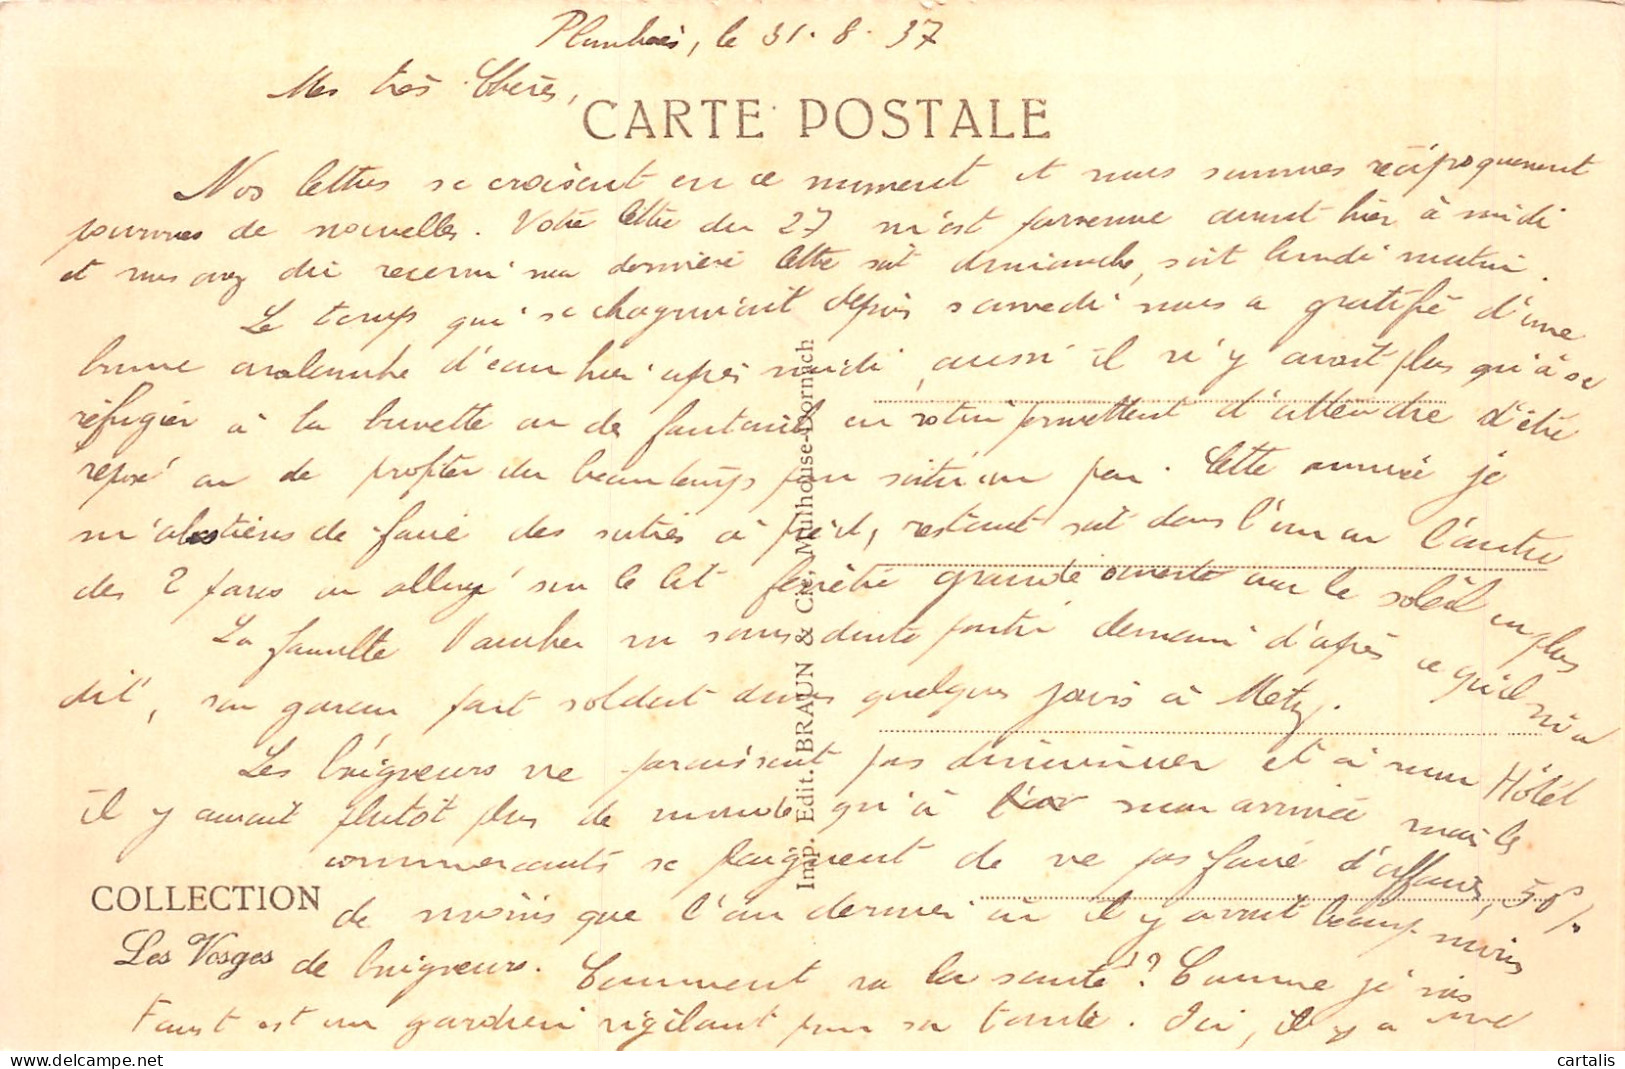 Plombières, le 31. 8. 37
Mes très Chères,
CARTE POSTALE
Nos lettres se croisent en ce moment et nous sommes réciproquement
pourvues de nouvelles. Votre lettre du 27 m'est parvenue avant hier à midi
et vous avez dû recevoir ma dernière lettre soit dimanche, soit lundi matin.
Le temps qui se chagrinait depuis samedi nous a gratifié d'une
bonne avalanche d'eau hier après midi, aussi il n'y avait plus qu'à se
réfugier à la buvette ou des fauteuils en rotin permettent d'attendre d'être
reposé ou de profiter du beau temps pour sortir un peu. Cette année je
m'abstiens de faire des sorties à pied, restant soit dans l'un ou l'autre
des 2 parcs ou allongé sur le lit fenêtre grande ouverte sur le soleil en plus
La famille Vaucher va sans doute partir demain d'après ce qu'il m'a
dit, son garçon part soldat dans quelques jours à Metz.
Les baigneurs ne paraissent pas diminuer et à mon Hôtel
il y aurait plutôt plus de monde qu'à mon arrivée mais les
commerçants se plaignent de ne pas faire d'affaires, 50%
de moins que l'an dernier où il y avait beaucoup moins
de baigneurs. Comment va la santé? Comme je vois
Faust est un gardien vigilant pour sa tante. Ici, il y a une
COLLECTION
Les Vosges
Imp. Edit. BRAUN & Cie, Mulhouse-Dornach
cartalis